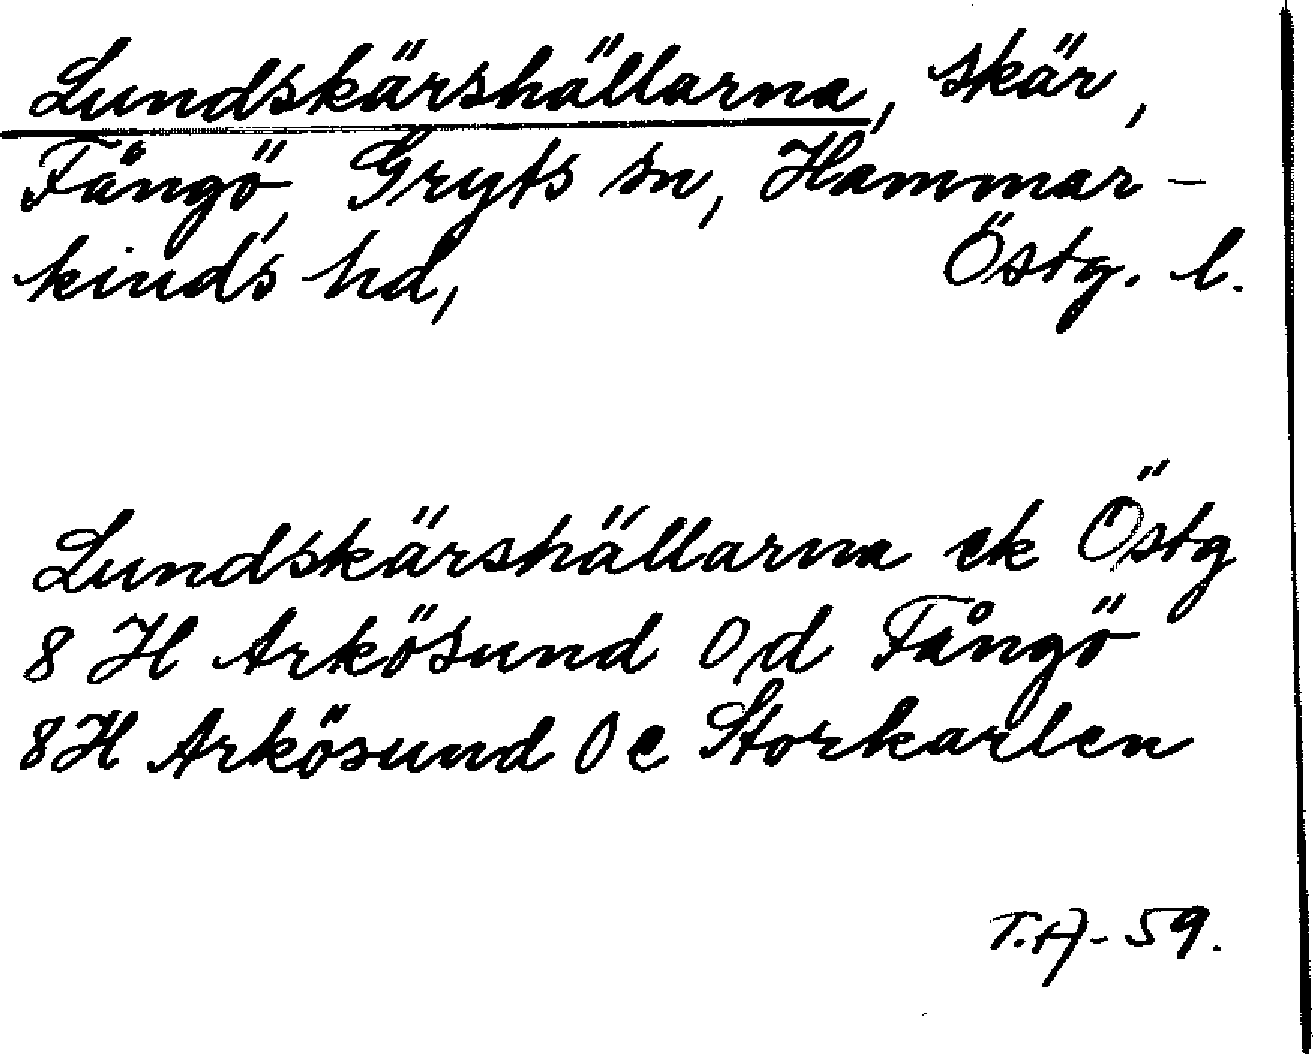 Lundskärshällarna, skär,
Fångö, Gryts sn, Hammar-
kinds hd, Östg. l.
Lundskärshällarna ek Östg
8 H Arkösund 0,d Fångö
8H Arkösund 0 c Storkarlen
T.A-59.